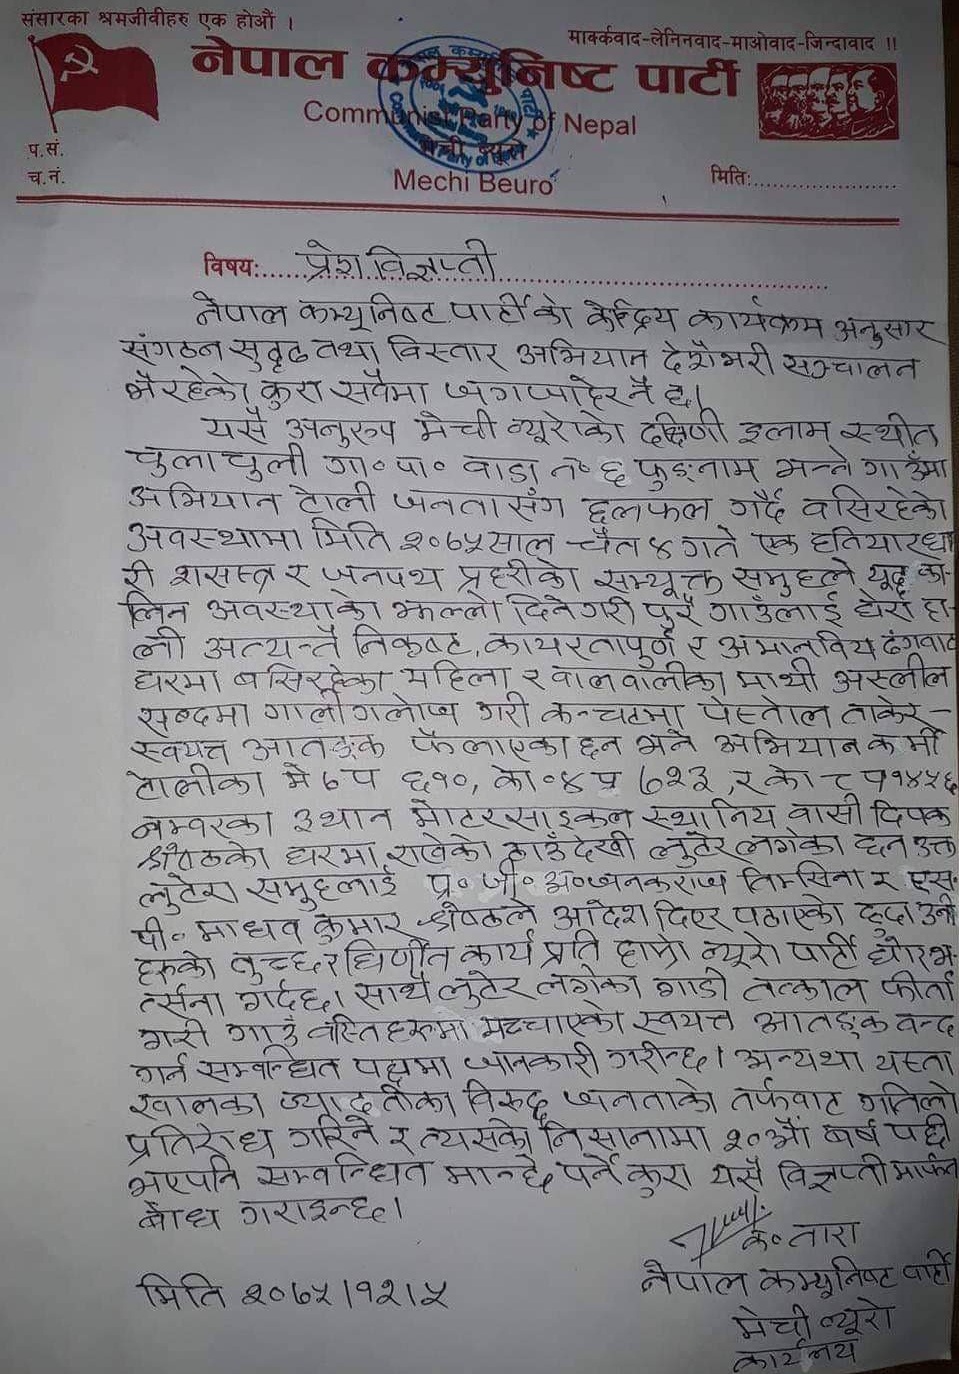 संसारका श्रमजीवीहरु एक होऔं ।
मार्क्कवाद-लेनिनवाद-माओवाद-जिन्दावाद !!
नेपाल कम्युनिष्ट पार्टी
Communist Party of Nepal
मेची व्यूरो
Mechi Beuro
प.सं.
च.नं.
मिति:
विषय: प्रेश विज्ञप्ती
नेपाल कम्यूनिष्ट पार्टीको केन्द्रिय कार्यक्रम अनुसार
संगठन सुदृढ तथा विस्तार अभियान देशैभरी सञ्चालन
भैरहेको कुरा सवैमा जगजाहेर नै छ।
यसै अनुरुप मेची व्यूरोका दक्षिणी इलाम स्थीत
चुलाचुली गा०पा० वाडा नं० ६ फुङ्नाम भन्ने गाउँमा
अभियान टोली जनतासंग छलफल गर्दै वसिरहेको
अवस्थामा मिति २०७५ साल चैत ४ गते एक हतियारधा
री शसस्त्र र जनपथ प्रहरीको सम्यूक्त समुहले यूद्ध का-
लिन अवस्थाको झल्लो दिनेगरी पुरै गाउँलाई घेरा हा-
ली अत्यन्तै निकृष्ट, कायरतापूर्ण र अमानविय ढंगवाट
घरमा बसिरहेका महिला र वालवालीका माथी अस्लील
शब्दमा गालीगलोज गरी कन्चटमा पेस्तोल ताकेर
स्वयत्त आतङ्क फैलाएका छन भने अभियानकर्मी
टोलीका मे ७ प ६१०, को०४ प ७२३, र को ८ प १४५६
नम्वरका ३ थान मोटरसाइकल स्थानिय वासी दिपक
श्रेष्ठको घरमा राखेको ठाउँदेखी लुटेर लगेका छन उक्त
लुटेरा समुहलाई प्र०जी०अ०जनकराज तिम्सिना र एस.
पी० माधव कुमार श्रेष्ठले आदेश दिएर पठाएको हुदा उनी
हरुको तुच्छ र घिणीत कार्य प्रति हाम्रो व्यूरो पार्टी घोर भ-
र्त्सना गर्दछ। साथै लुटेर लगेका गाडी तत्काल फीर्ता
गरी गाउँ वस्तिहरुमा मच्चाएको स्वयत्त आतङ्क वन्द
गर्न सम्वन्धित पक्षमा जानकारी गरीन्छ। अन्यथा यस्ता
खालका ज्यादतीका विरुद्ध जनताको तर्फवाट गतिलो
प्रतिरोध गरिने र त्यसको निसानामा २०औं बर्ष पछी
भएपनि सम्वन्धित मान्छे पर्ने कुरा यसै विज्ञप्ती मार्फत
बोध गराइन्छ।
क० तारा
नेपाल कम्युनिष्ट पार्टी
मेची व्यूरो
कार्यलय
मिति २०७५।१२।५